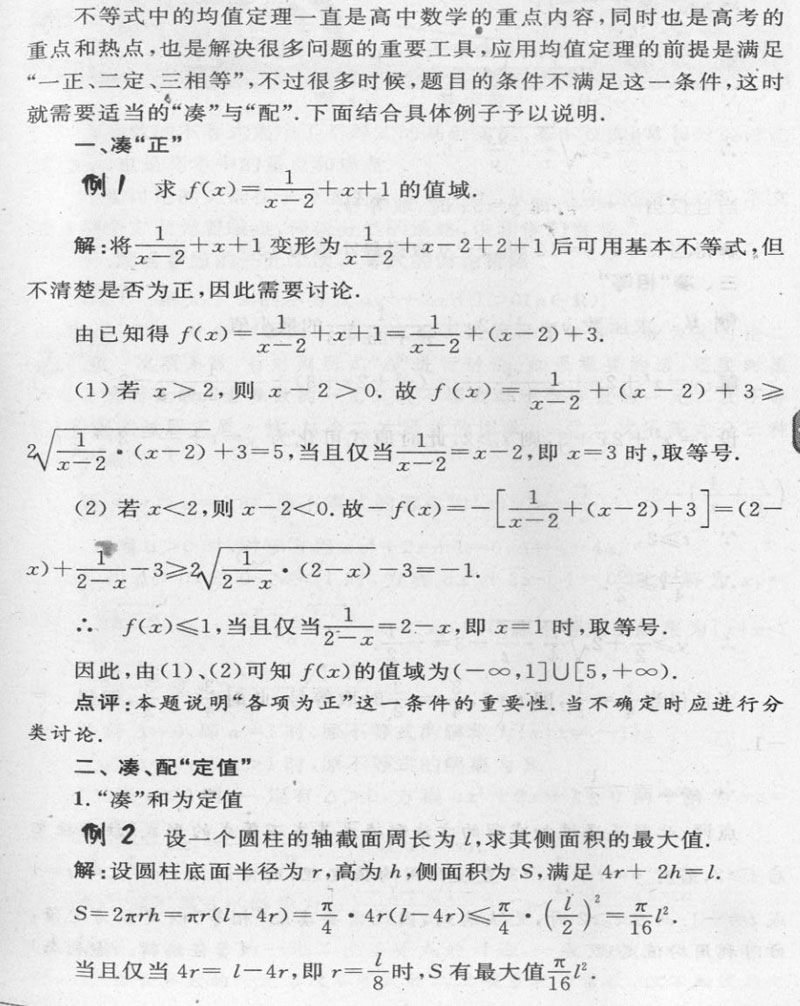 不等式中的均值定理一直是高中数学的重点内容,同时也是高考的
重点和热点,也是解决很多问题的重要工具,应用均值定理的前提是满足
“一正、二定、三相等”,不过很多时候,题目的条件不满足这一条件,这时
就需要适当的“凑”与“配”.下面结合具体例子予以说明.
一、凑“正”
例1 求 f(x)=1/(x-2)+x+1 的值域.
解:将1/(x-2)+x+1 变形为1/(x-2)+x-2+2+1后可用基本不等式,但
不清楚是否为正,因此需要讨论.
由已知得 f(x)=1/(x-2)+x+1=1/(x-2)+(x-2)+3.
(1)若 x>2,则 x-2>0.故 f(x)=1/(x-2)+(x-2)+3≥
2√(1/(x-2)·(x-2))+3=5,当且仅当1/(x-2)=x-2,即 x=3 时,取等号.
(2)若 x<2,则 x-2<0.故-f(x)=-[1/(x-2)+(x-2)+3]=(2-
x)+1/(2-x)-3≥2√(1/(2-x)·(2-x))-3=-1.
∴ f(x)≤1,当且仅当1/(2-x)=2-x,即 x=1 时,取等号.
因此,由(1)、(2)可知 f(x)的值域为(-∞,1]∪[5,+∞).
点评:本题说明“各项为正”这一条件的重要性.当不确定时应进行分
类讨论.
二、凑、配“定值”
1.“凑”和为定值
例2 设一个圆柱的轴截面周长为 l,求其侧面积的最大值.
解:设圆柱底面半径为 r,高为 h,侧面积为 S,满足 4r+2h=l.
S=2πrh=πr(l-4r)=π/4·4r(l-4r)≤π/4·(l/2)²=π/16l².
当且仅当 4r=l-4r,即 r=l/8时,S 有最大值π/16l².